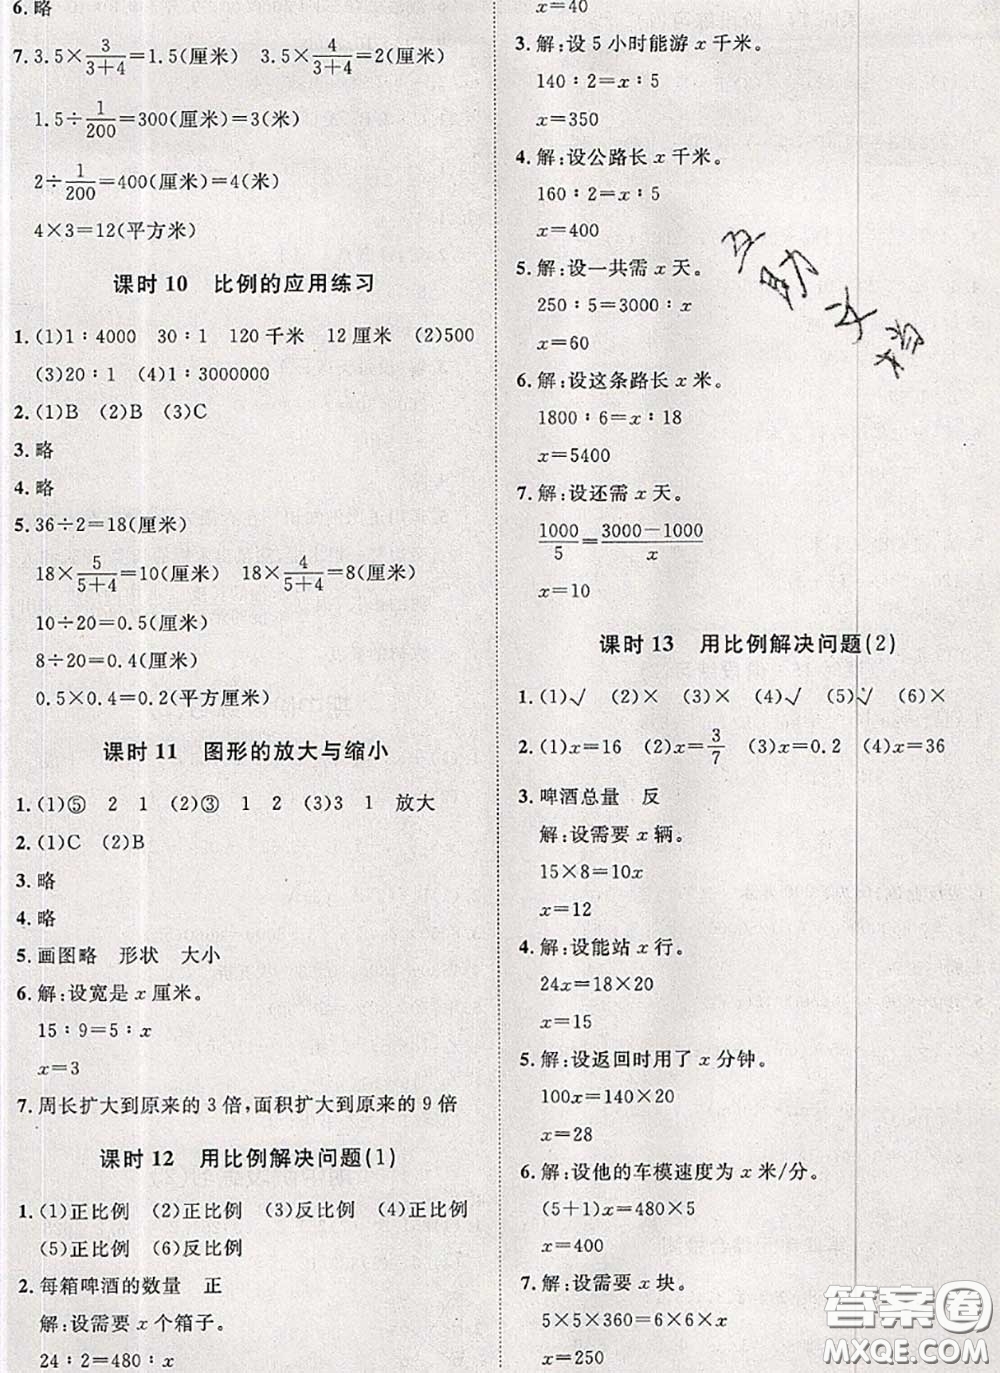 6.略
7.3.5×3/(3+4)=1.5(厘米)　3.5×4/(3+4)=2(厘米)
1.5÷1/200=300(厘米)=3(米)
2÷1/200=400(厘米)=4(米)
4×3=12(平方米)
课时10　比例的应用练习
1.(1)1∶4000　30∶1　120千米　12厘米　(2)500
(3)20∶1　(4)1∶3000000
2.(1)B　(2)B　(3)C
3.略
4.略
5.36÷2=18(厘米)
18×5/(5+4)=10(厘米)　18×4/(5+4)=8(厘米)
10÷20=0.5(厘米)
8÷20=0.4(厘米)
0.5×0.4=0.2(平方厘米)
课时11　图形的放大与缩小
1.(1)⑤　2　1　(2)③　1　2　(3)3　1　放大
2.(1)C　(2)B
3.略
4.略
5.画图略　形状　大小
6.解:设宽是x厘米。
15∶9=5∶x
x=3
7.周长扩大到原来的3倍,面积扩大到原来的9倍
课时12　用比例解决问题(1)
1.(1)正比例　(2)正比例　(3)反比例　(4)正比例
(5)正比例　(6)反比例
2.每箱啤酒的数量　正
解:设需要x个箱子。
24∶2=480∶x
x=40
3.解:设5小时能游x千米。
140∶2=x∶5
x=350
4.解:设公路长x千米。
160∶2=x∶5
x=400
5.解:设一共需x天。
250∶5=3000∶x
x=60
6.解:设这条路长x米。
1800∶6=x∶18
x=5400
7.解:设还需x天。
1000/5=(3000-1000)/x
x=10
课时13　用比例解决问题(2)
1.(1)√　(2)×　(3)×　(4)√　(5)√　(6)×
2.(1)x=16　(2)x=3/7　(3)x=0.2　(4)x=36
3.啤酒总量　反
解:设需要x辆。
15×8=10x
x=12
4.解:设能站x行。
24x=18×20
x=15
5.解:设返回时用了x分钟。
100x=140×20
x=28
6.解:设他的车模速度为x米/分。
(5+1)x=480×5
x=400
7.解:设需要x块。
5×5×360=6×6×x
x=250
答案卷
MXQE.COM